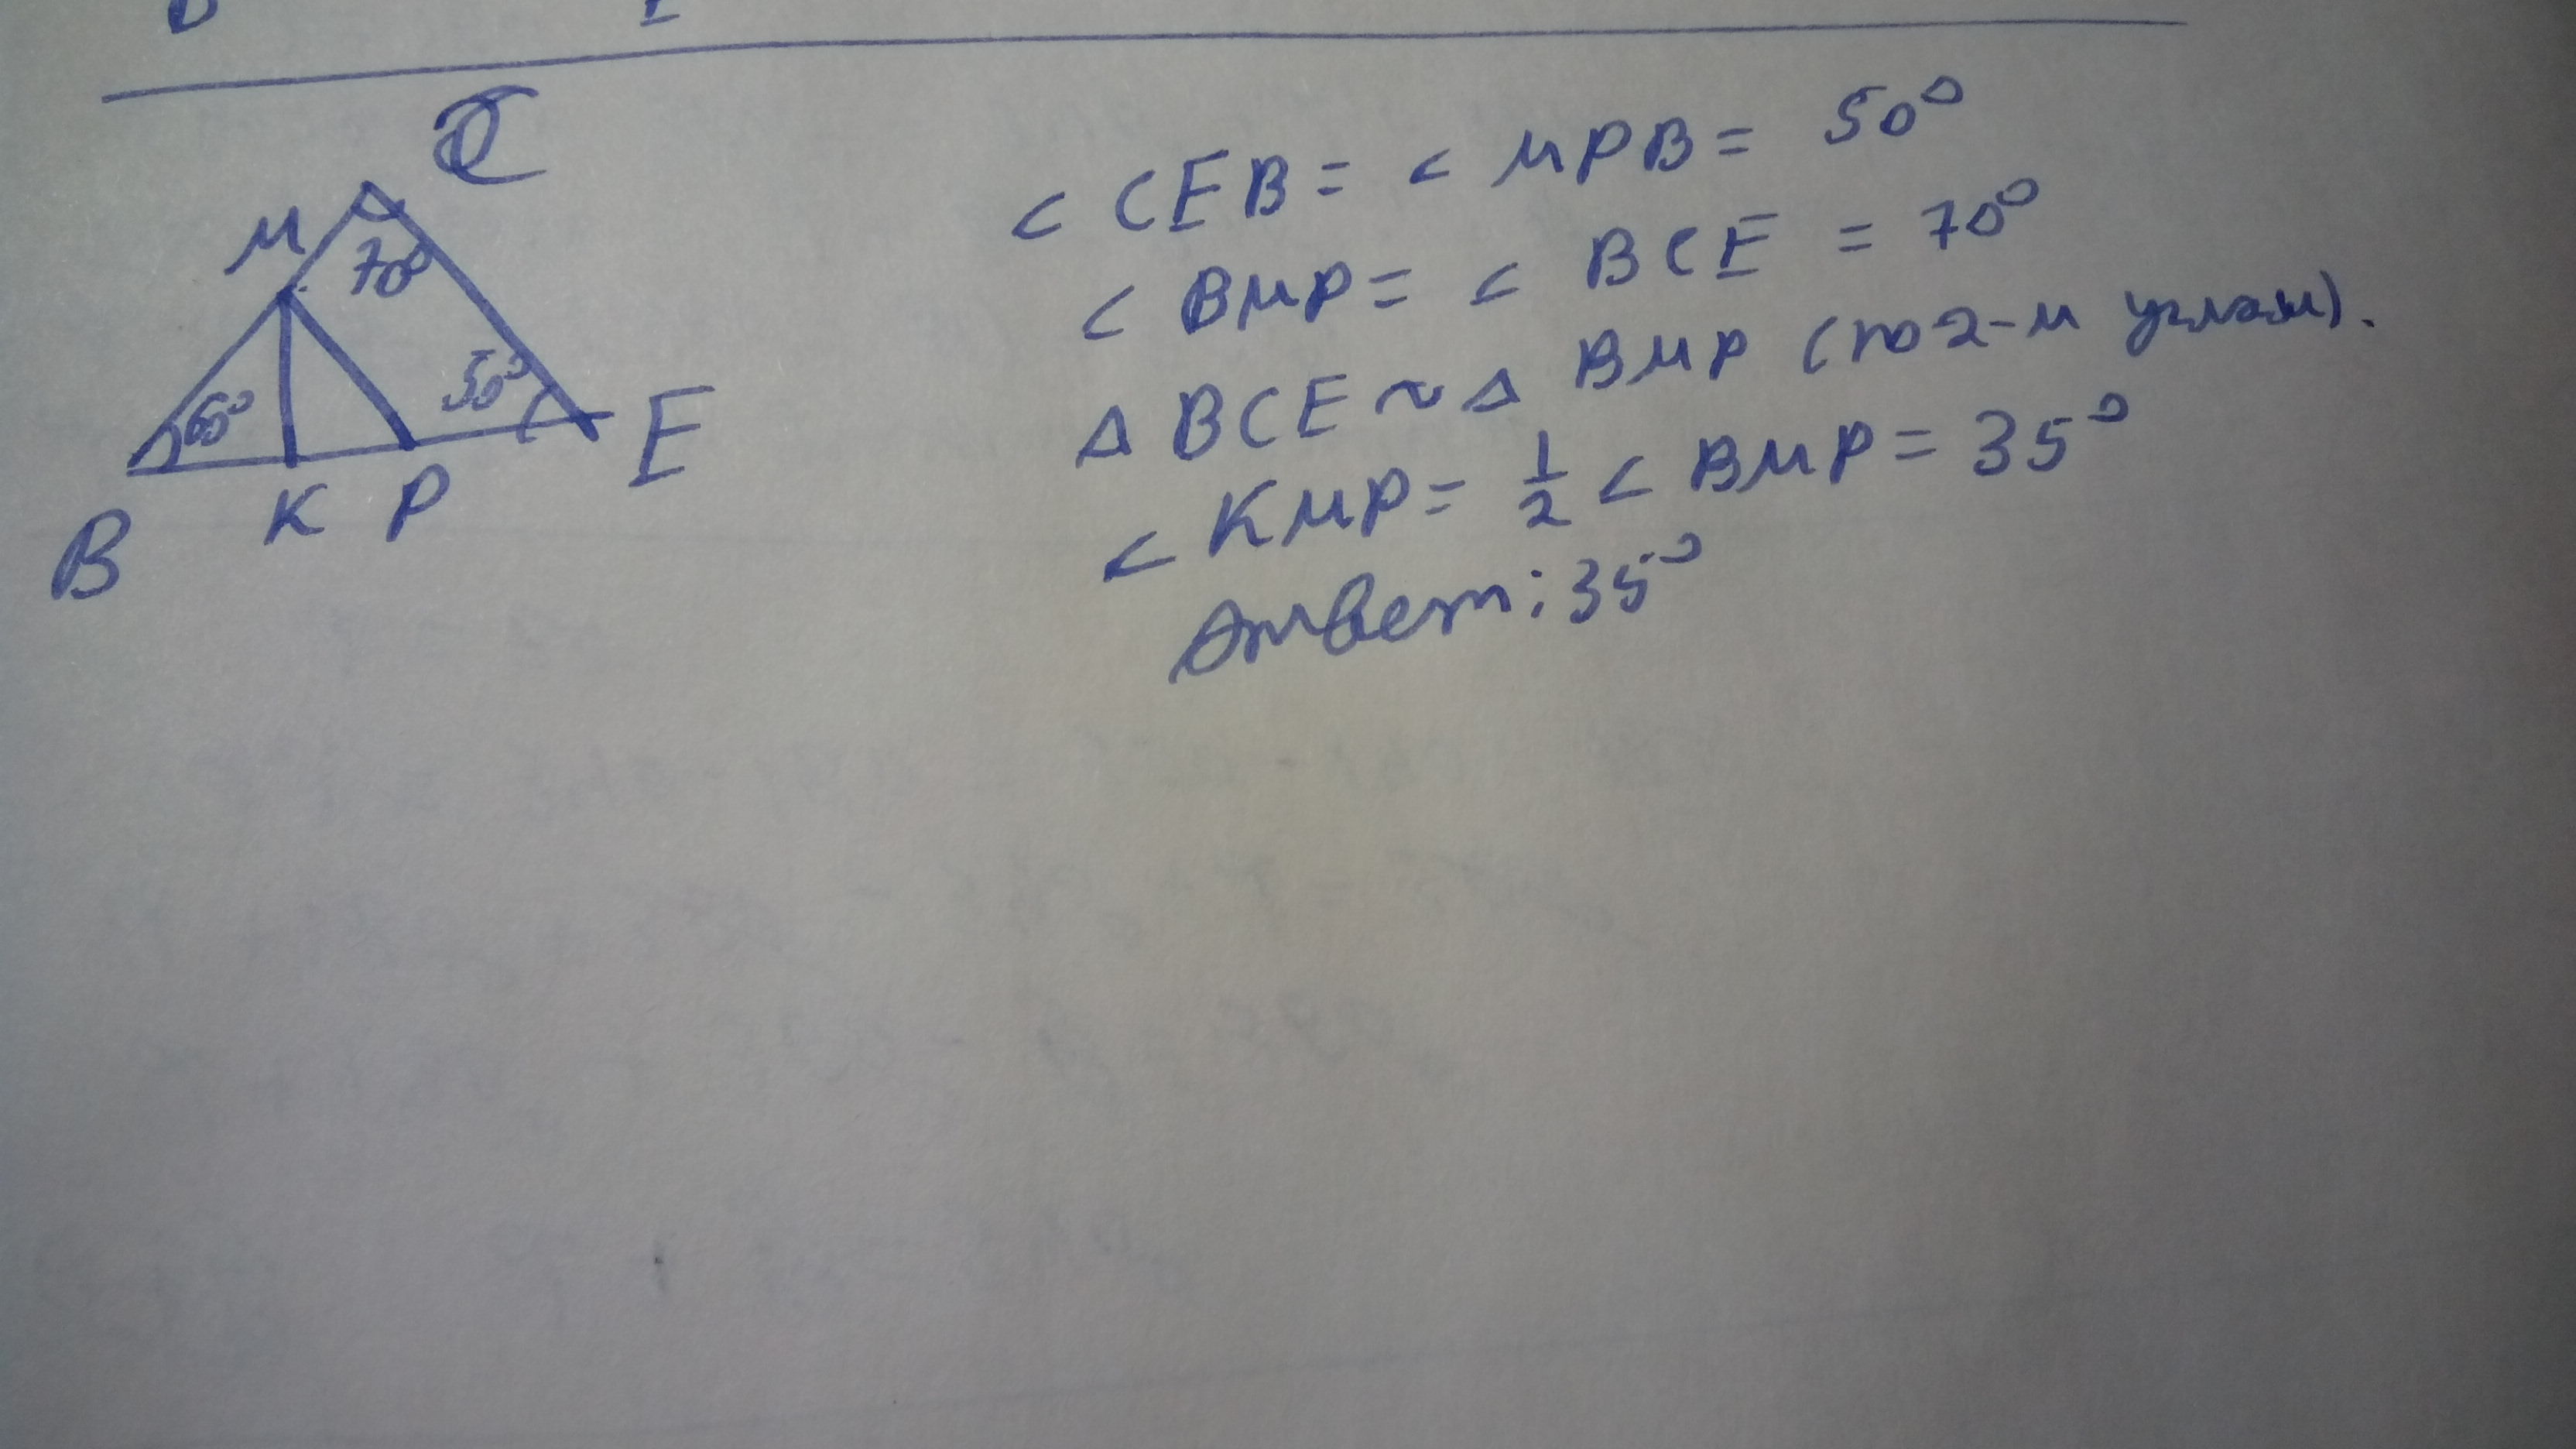 C
М
70°
60°
50°
E
B
K
P
< CEB = < МPB = 50°
< BМP = < BCE = 70°
Δ BCE ~ Δ BМP (по 2-м углам).
< KМP = 1/2 < BМP = 35°
Ответ: 35°